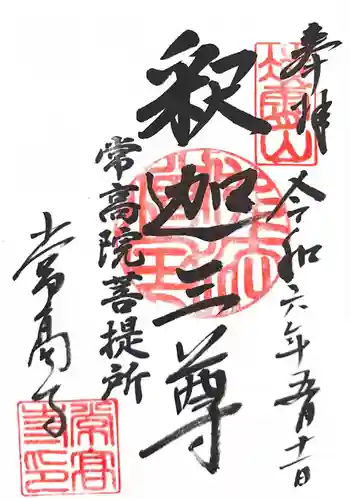 奉拝
令和六年五月十一日
釈迦三尊
常高院菩提所
常高寺